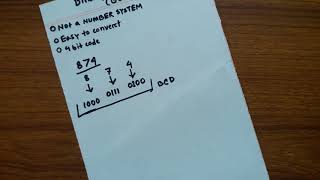 O NOT A NUMBER SYSTEM
O EASY to convert
O 4 bit code
874
8 7 4
↓ ↓ ↓
1000 0111 0100 BCD